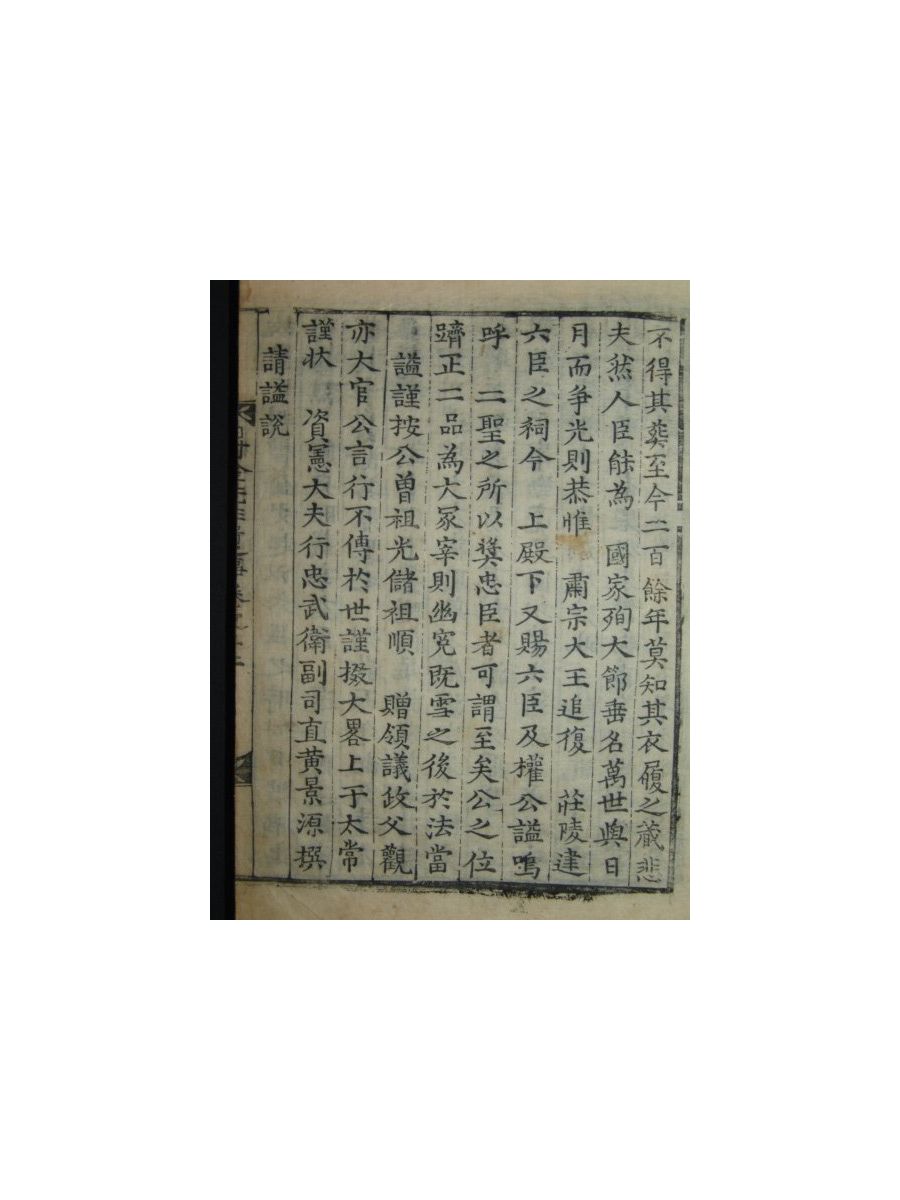 不得其葬至今二百餘年莫知其衣履之藏悲
夫然人臣能為 國家殉大節垂名萬世與日
月而争光則恭惟 肅宗大王追復 莊陵建
六臣之祠今 上殿下又賜六臣及權公謚嗚
呼 二聖之所以奬忠臣者可謂至矣公之位
躋正二品為大冢宰則幽冤既雪之後於法當
謚謹按公曽祖光儲祖順 贈領議政父觀
亦大官公言行不傳於世謹掇大畧上于太常
謹状 資憲大夫行忠武衛副司直黄景源撰
請謚説